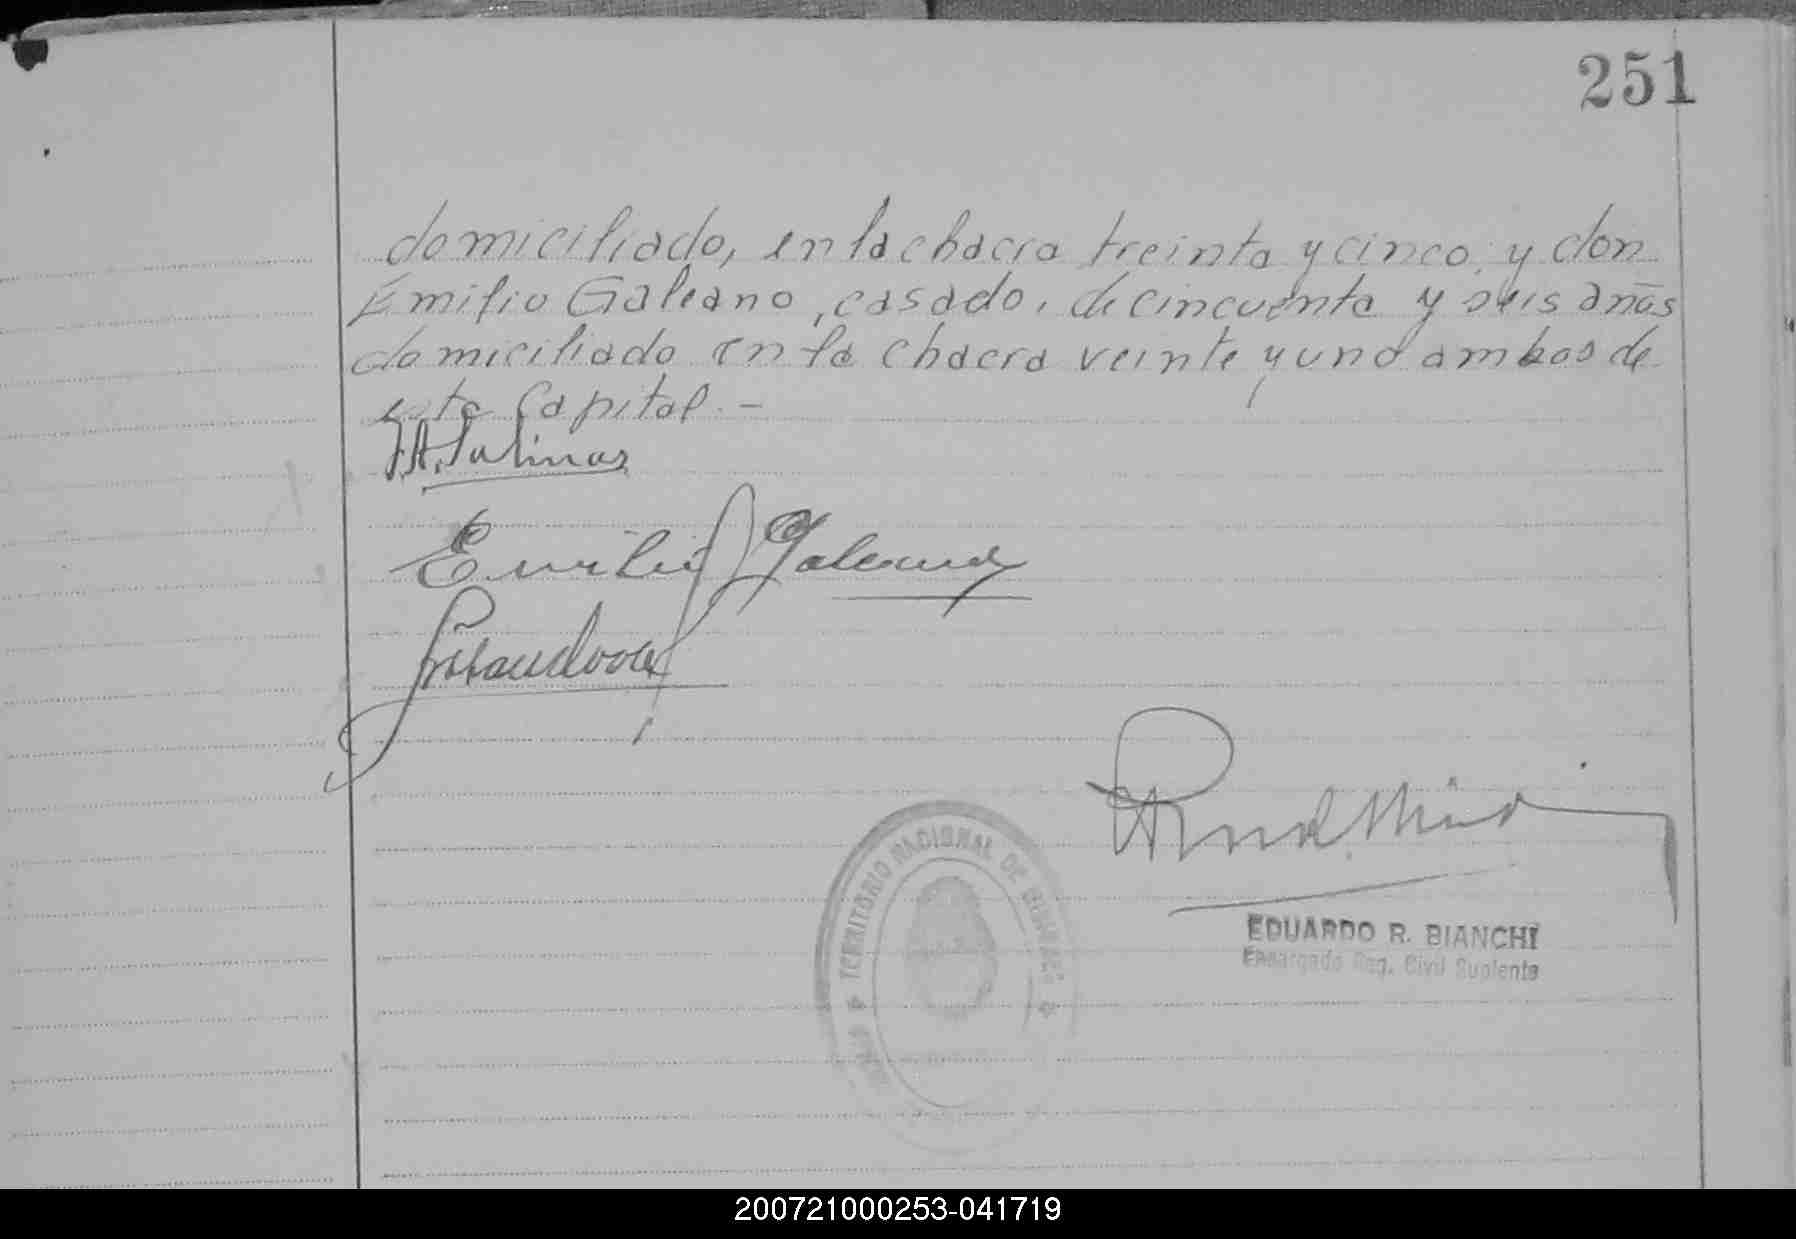 251
domiciliado, en la chacra treinta y cinco, y don
Emilio Galeano, casado, de cincuenta y seis años
domiciliado en la chacra veinte y uno ambos de
esta Capital. —
J.A. Salinas
Emilio Galeano
TERRITORIO NACIONAL DE
EDUARDO R. BIANCHI
Encargado Reg. Civil Suplente
200721000253-041719